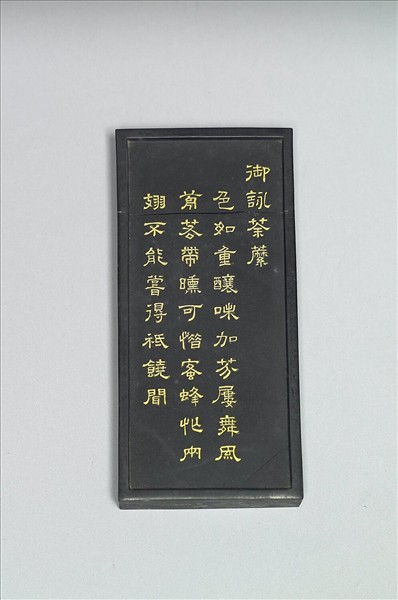 御詠荼䕷
色如重釀味加芬屢舞風
前若帶曛可惜蜜蜂忙兩
翅不能嘗得祗饒聞